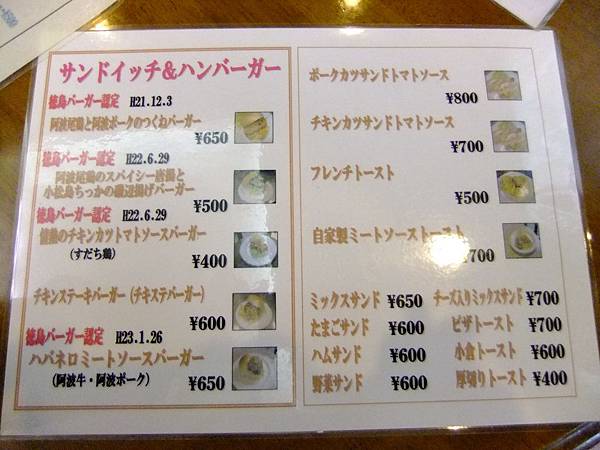 サンドイッチ&ハンバーガー
徳島バーガー認定 H21.12.3
阿波尾鶏と阿波ポークのつくねバーガー
¥650
徳島バーガー認定 H22.6.29
阿波尾鶏のスパイシー唐揚と
小松島ちっかの磯辺揚げバーガー
¥500
徳島バーガー認定 H22.6.29
情熱のチキンカツトマトソースバーガー
(すだち鶏)
¥400
チキンステーキバーガー (チキステバーガー)
¥600
徳島バーガー認定 H23.1.26
ハバネロミートソースバーガー
(阿波牛・阿波ポーク)
¥650
ポークカツサンドトマトソース
¥800
チキンカツサンドトマトソース
¥700
フレンチトースト
¥500
自家製ミートソーストースト
¥700
ミックスサンド ¥650 チーズ入りミックスサンド ¥700
たまごサンド ¥600 ピザトースト ¥700
ハムサンド ¥600 小倉トースト ¥600
野菜サンド ¥600 厚切りトースト ¥400